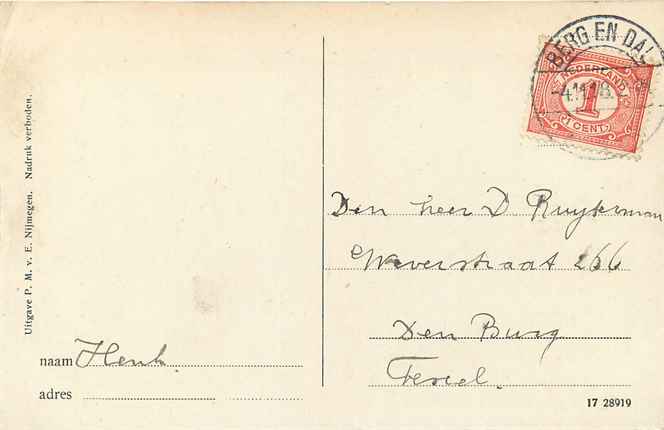 Uitgave P. M. v. E. Nijmegen. Nadruk verboden.
naam Henk
adres
BERG EN DAL
-4.11.18.
NEDERLAND
1
1 CENT
Den heer D
Weverstraat 266
Den Burg
Texel.
17 28919